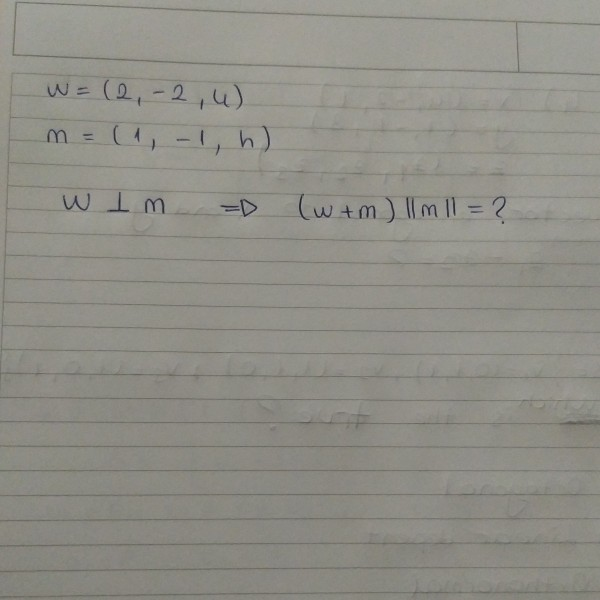 w = (2, -2, 4)
m = (1, -1, h)
w ⊥ m ⇒ (w+m) ||m|| = ?